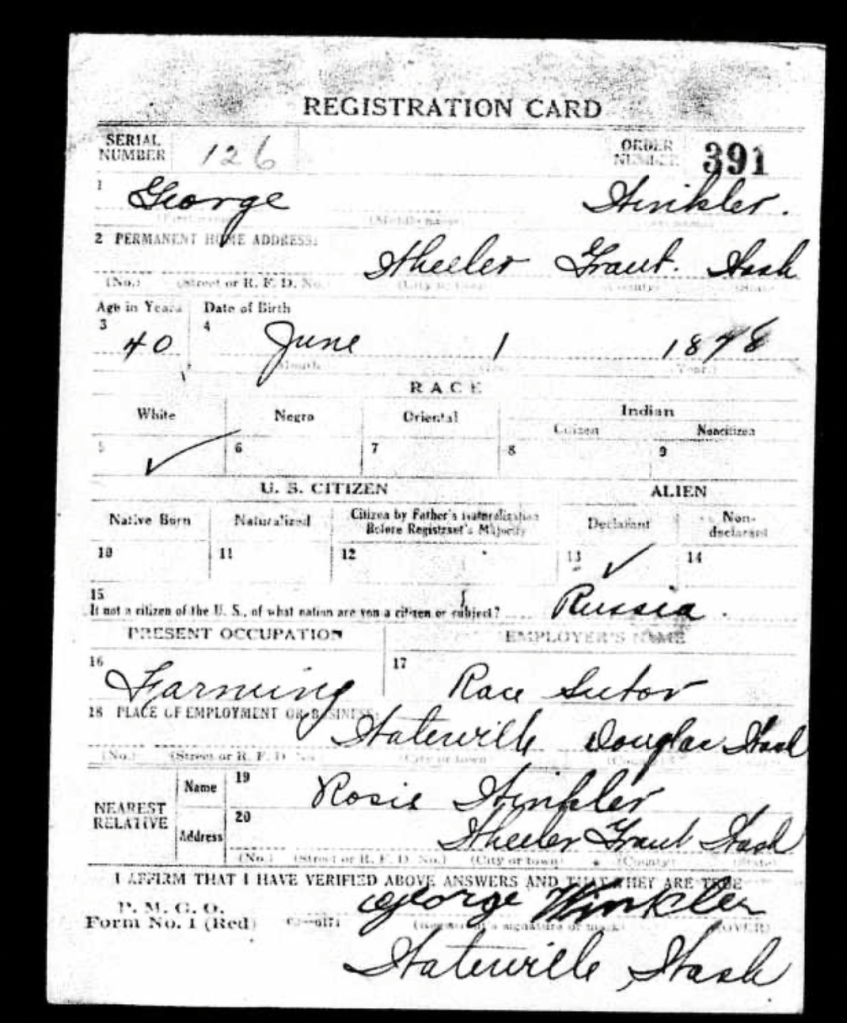 REGISTRATION CARD
SERIAL NUMBER 126 ORDER NUMBER 391
1 George Winkler.
(First name) (Middle name) (Last name)
2 PERMANENT HOME ADDRESS:
Wheeler Grant. Wash
(No.) (Street or R. F. D. No.) (City or town) (County) (State)
Age in Years Date of Birth
3 40 4 June 1 1878
(Month) (Day) (Year)
RACE
White Negro Oriental Indian
Citizen Noncitizen
5 ✓ 6 7 8 9
U. S. CITIZEN ALIEN
Native Born Naturalized Citizen by Father's Naturalization Before Registrant's Majority Declarant Non-declarant
10 11 12 13 ✓ 14
15
If not a citizen of the U. S., of what nation are you a citizen or subject? Russia.
PRESENT OCCUPATION EMPLOYER'S NAME
16 Farming 17 Race Sutor
18 PLACE OF EMPLOYMENT OR BUSINESS:
Waterville Douglas Wash
(No.) (Street or R. F. D. No.) (City or town) (County) (State)
NEAREST RELATIVE Name 19 Rosie Winkler
Address 20 Wheeler Grant Wash
(No.) (Street or R. F. D. No.) (City or town) (County) (State)
I AFFIRM THAT I HAVE VERIFIED ABOVE ANSWERS AND THAT THEY ARE TRUE
P. M. G. O.
Form No. 1 (Red) George Winkler
(Registrant's signature or mark) (OVER)
Waterville, Wash